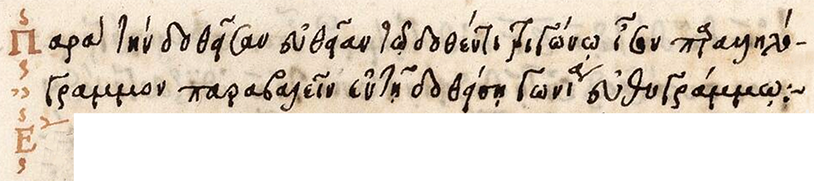 Παρὰ τὴν δοθεῖσαν εὐθεῖαν τῷ δοθέντι τριγώνῳ ἴσον παραλληλό-
γραμμον παραβαλεῖν ἐν τῇ δοθείσῃ γωνίᾳ εὐθυγράμμῳ:~
Ε